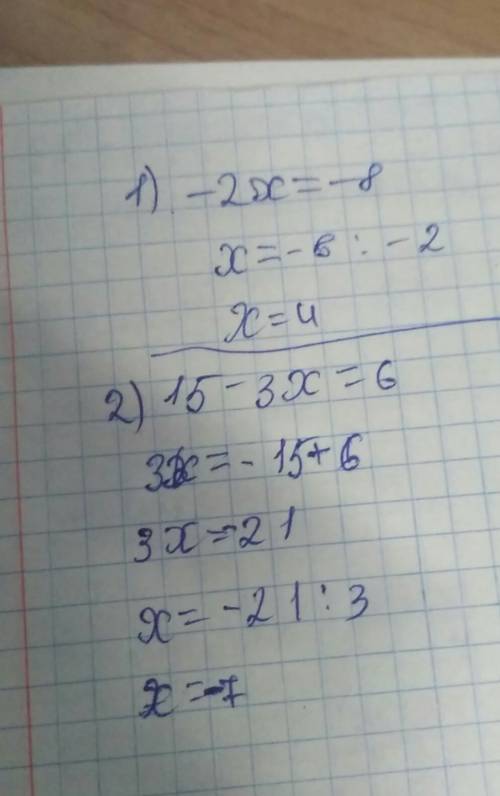 1) -2x=-8
x=-8 : -2
x=4
2) 15-3x=6
3x=-15+6
3x=-21
x=-21:3
x=-7